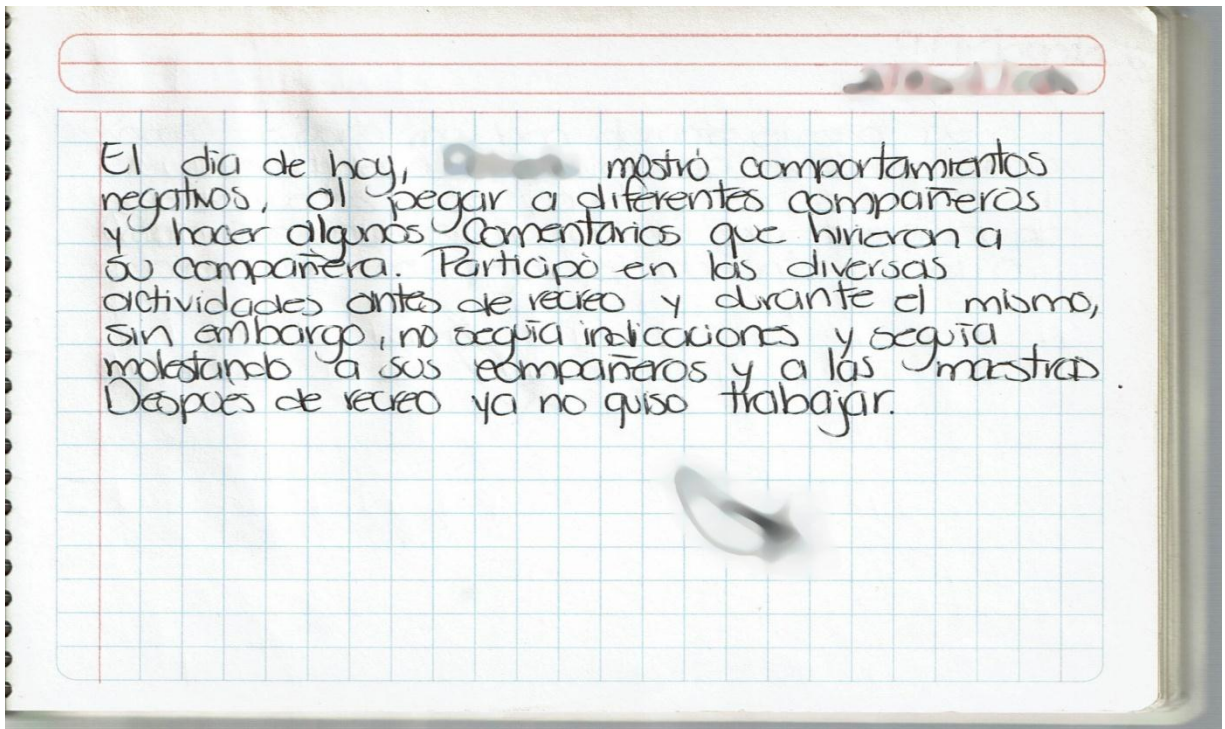 El dia de hoy, mostró comportamientos
negativos, al pegar a diferentes compañeros
y hacer algunos comentarios que hirieron a
su compañera. Participó en las diversas
actividades antes de recreo y durante el mismo,
sin embargo, no seguía indicaciones y seguía
molestando a sus compañeros y a las maestras.
Despues de recreo ya no quiso trabajar.